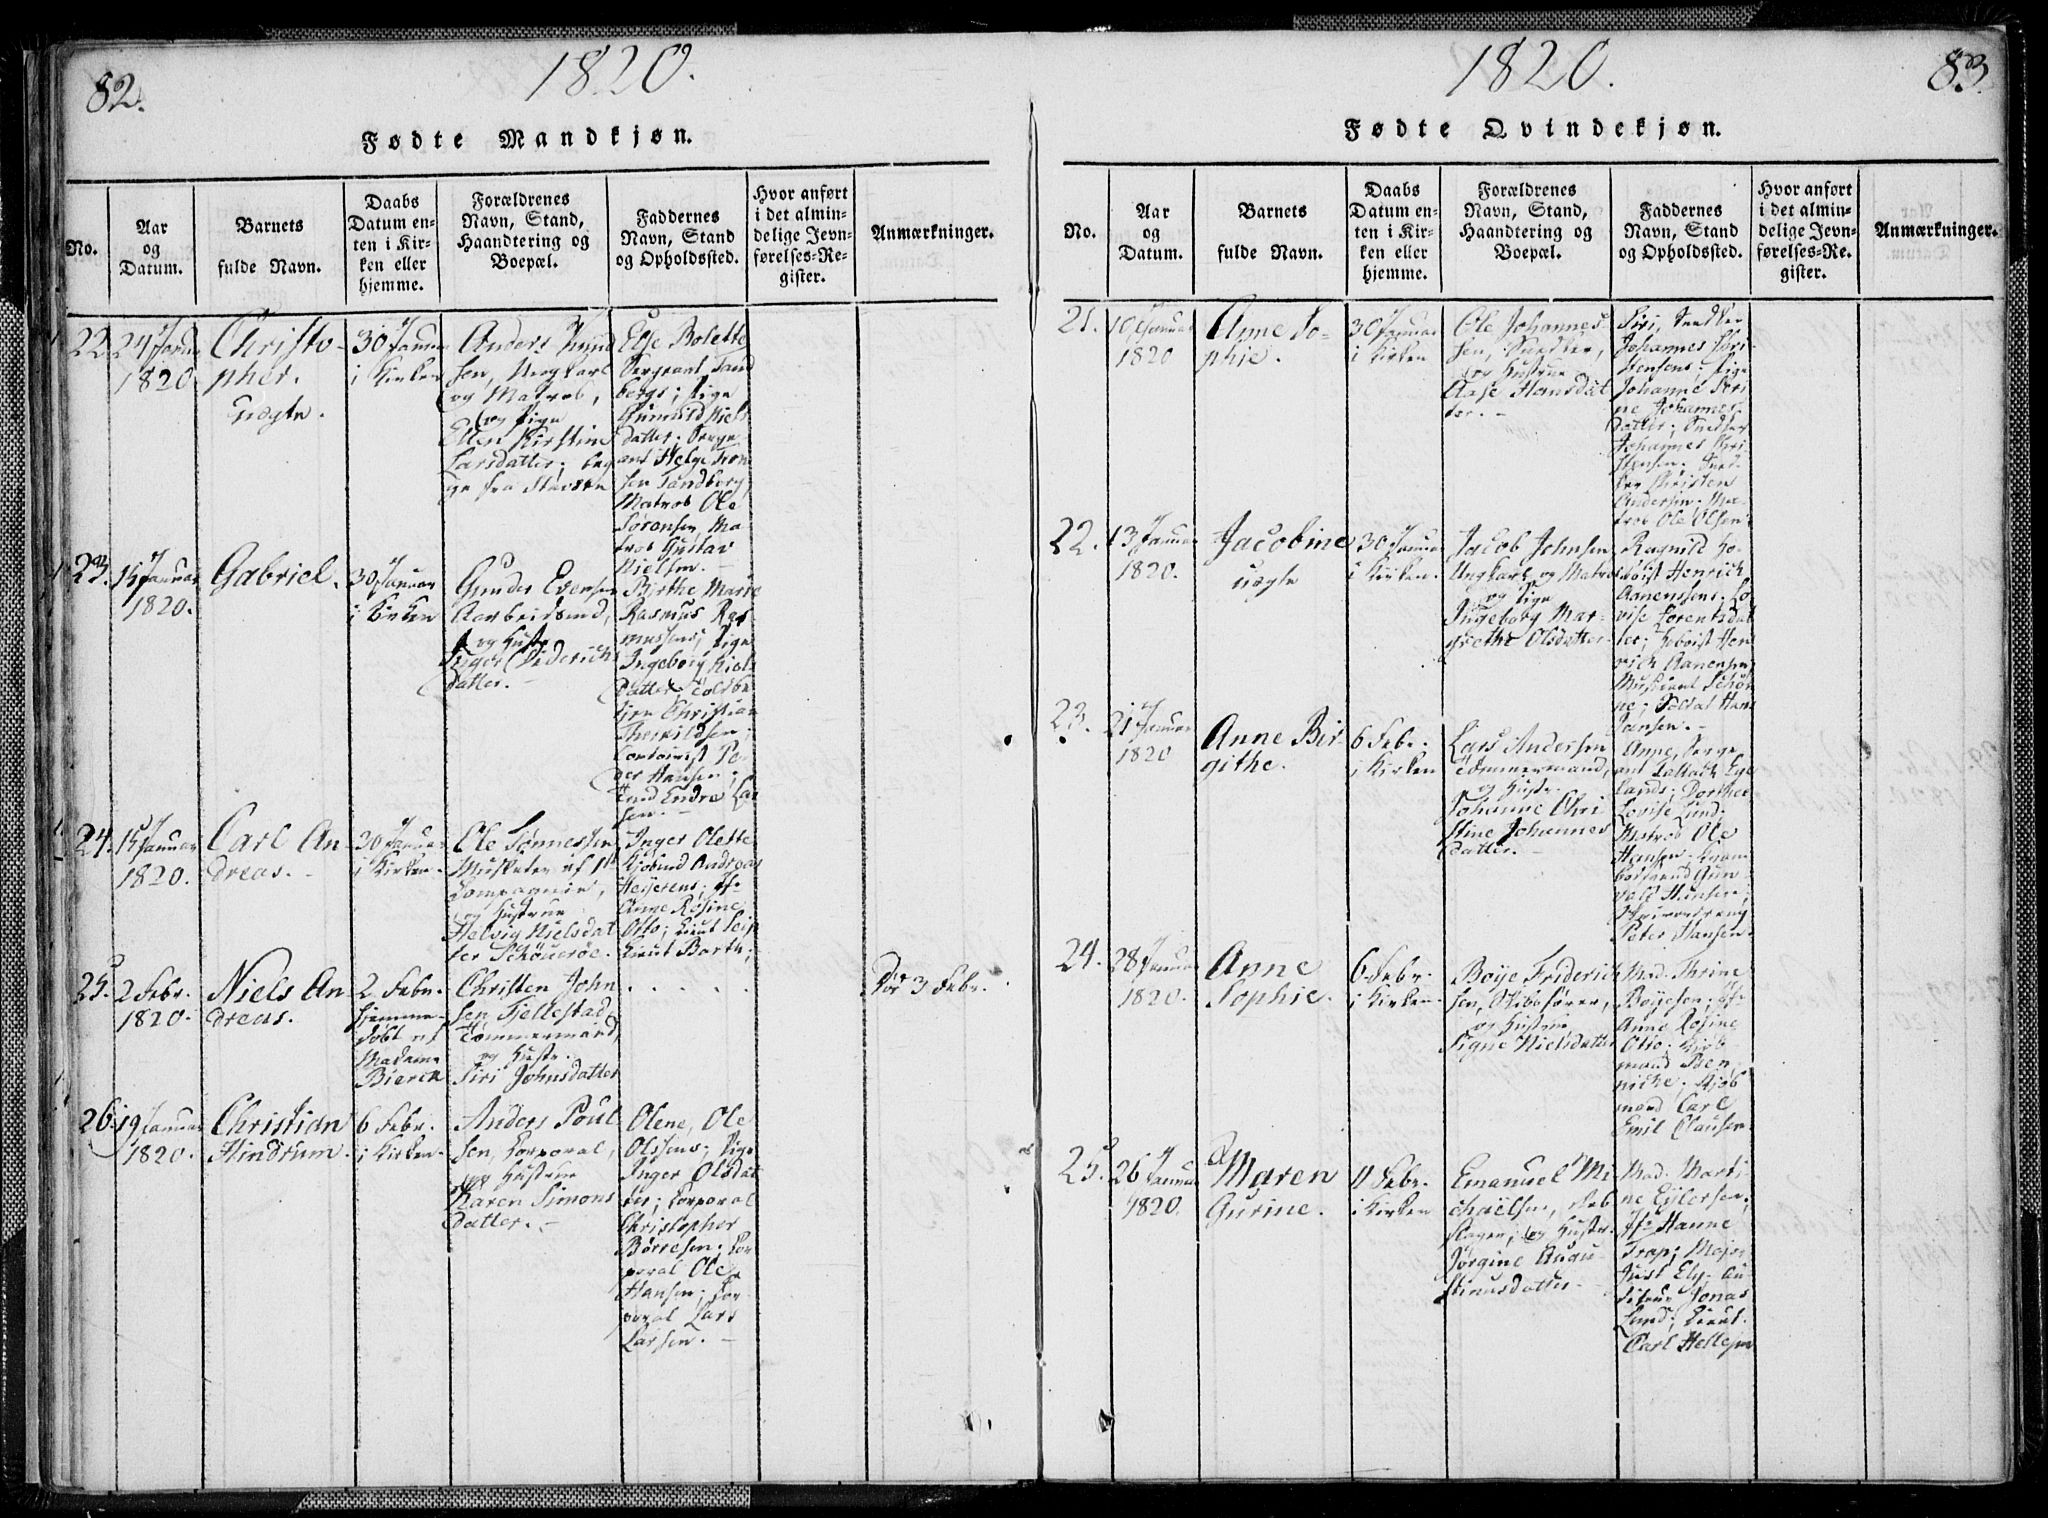 82.
1820.
Fødte Mandkjøn.
No.
Aar og Datum.
Barnets fulde Navn.
Daabs Datum enten i Kirken eller hjemme.
Forældrenes Navn, Stand, Haandtering og Boepæl.
Faddernes Navn, Stand og Opholdssted.
Hvor anført i det almindelige Jevnførelses-Register.
Anmærkninger.
22.
24 Januar
1820
Christo-
pher.
uægte.
30 Januar
i Kirken
Anders Knud
sen, Ungkarl
og Matros,
og Pige
Ellen Kirstine
Larsdatter; beg
ge fra
Else Bolette
Sergeant Sand
bergs; Pige
Gunnild Niels
datter; Serge-
ant Helge
sen Sandberg
Matros Ole
Sørensen, Ma
tros Gustav
Nielsen.
23.
15 Januar
1820.
Gabriel.
30 Januar
i Kirken
Gunder Evensen
Arbeidsmd,
og Hustr.
Inger Diderich
datter.
Birthe Marie
Rasmus Ras
mussens; Pige
Ingeborg Niels
datter,
Christian
Therkildsen;
Pe-
der Hansen;
Endre Lar
sen.
24.
15 Januar
1820.
Carl An
dreas.
30 Januar
i Kirken.
Ole Tønnessen
Musketer af 1ste
Compagnie,
og Hustrue
Helvig Nielsdat
ter Schöueröe.
Inger Olette
Kjøbmd Andreas
Heyerens; Jfr
Anne Rosine
Otto; Lieut
Lieut Barth;
25.
2 Febr.
1820.
Niels An
dreas.
2 Febr.
hjemme-
døbt af
Madame
Bierck
Christen John
sen Fjellestad
Tømmermand,
og Hustr.
Siri Johnsdatter
. . . . .
Død 3 Febr.
26.
19 Januar
1820.
Christian
Hindrum.
6 Febr.
i Kirken.
Anders Poul
sen, Corporal,
og Hustrue
Karen Simons
datter.
Olene, Ole
Olsens; Pige
Inger Olsdat
ter; Corporal
Christopher
Børresen; Cor
poral Ole
Hansen; Cor-
poral Lars
Larsen.
1820.
83.
Fødte Qvindekjøn.
No.
Aar og Datum.
Barnets fulde Navn.
Daabs Datum enten i Kirken eller hjemme.
Forældrenes Navn, Stand, Haandtering og Boepæl.
Faddernes Navn, Stand og Opholdssted.
Hvor anført i det almindelige Jevnførelses-Register.
Anmærkninger.
21.
10 Januar
1820
Anne So-
phie.
30 Januar
i Kirken
Ole Johannes-
sen, Snedker,
og Hustrue
Aase Hansdat
ter.
Siri, Snedker
Johannes Chri-
stensens; Pige
Johanne Seri
ne Johannes
datter; Snedker
Johannes Chri
stensen. Sned-
ker Christen
Andersen. Ma-
tros Ole Olsen.
22.
13 Januar
1820.
Jacobine
uægte
30 Januar
i Kirken.
Jacob Johnsen
Ungkarl og Matros
og Pige
Ingeborg Mar-
grethe Olsdatter.
Ragnild Ho-
boist Henrich
Aanensens. Lo-
vise Forentsdat
ter; Hoboist Hen
rich Aanensen
Musicant
Soldat Hans
Jansen.
23.
21 Januar
1820
Anne Bir-
githe.
6 Febr.
i Kirken
Lars Andersen
Tømmermand,
og Hustr.
Johanne Chri
stine Johannes
datter.
Anne, Serge
ant Tallach Ege
lands; Dorthea
Lovise Lund;
Matros Ole
Hansen. Kram
bodsvend Gun
vald Hansen;
Peter Hansen.
24.
28 Januar
1820.
Anne
Sophie.
6 Febr.
i Kirken.
Boye Friderich
sen, Skibsfører,
og Hustrue
Signe Nielsdatter
Mad. Thrine
Boyesen; Jfr
Anne Rosine
Otto. Kjøb-
mand
Kjøb
mand Carl
Emil Clausen.
25.
26 Januar
1820.
Maren
Gurine.
11 Febr.
i Kirken
Emanuel Mi-
chaelsen, Reb
slager, og Hustr.
Jørgine Augu-
stinusdatter.
Mad. Marti
ne Eylersen,
Jfr Hanne
Trap; Major
Just Ely. Au
diteur Jonas
Lund; Lieut.
Carl Hellesen